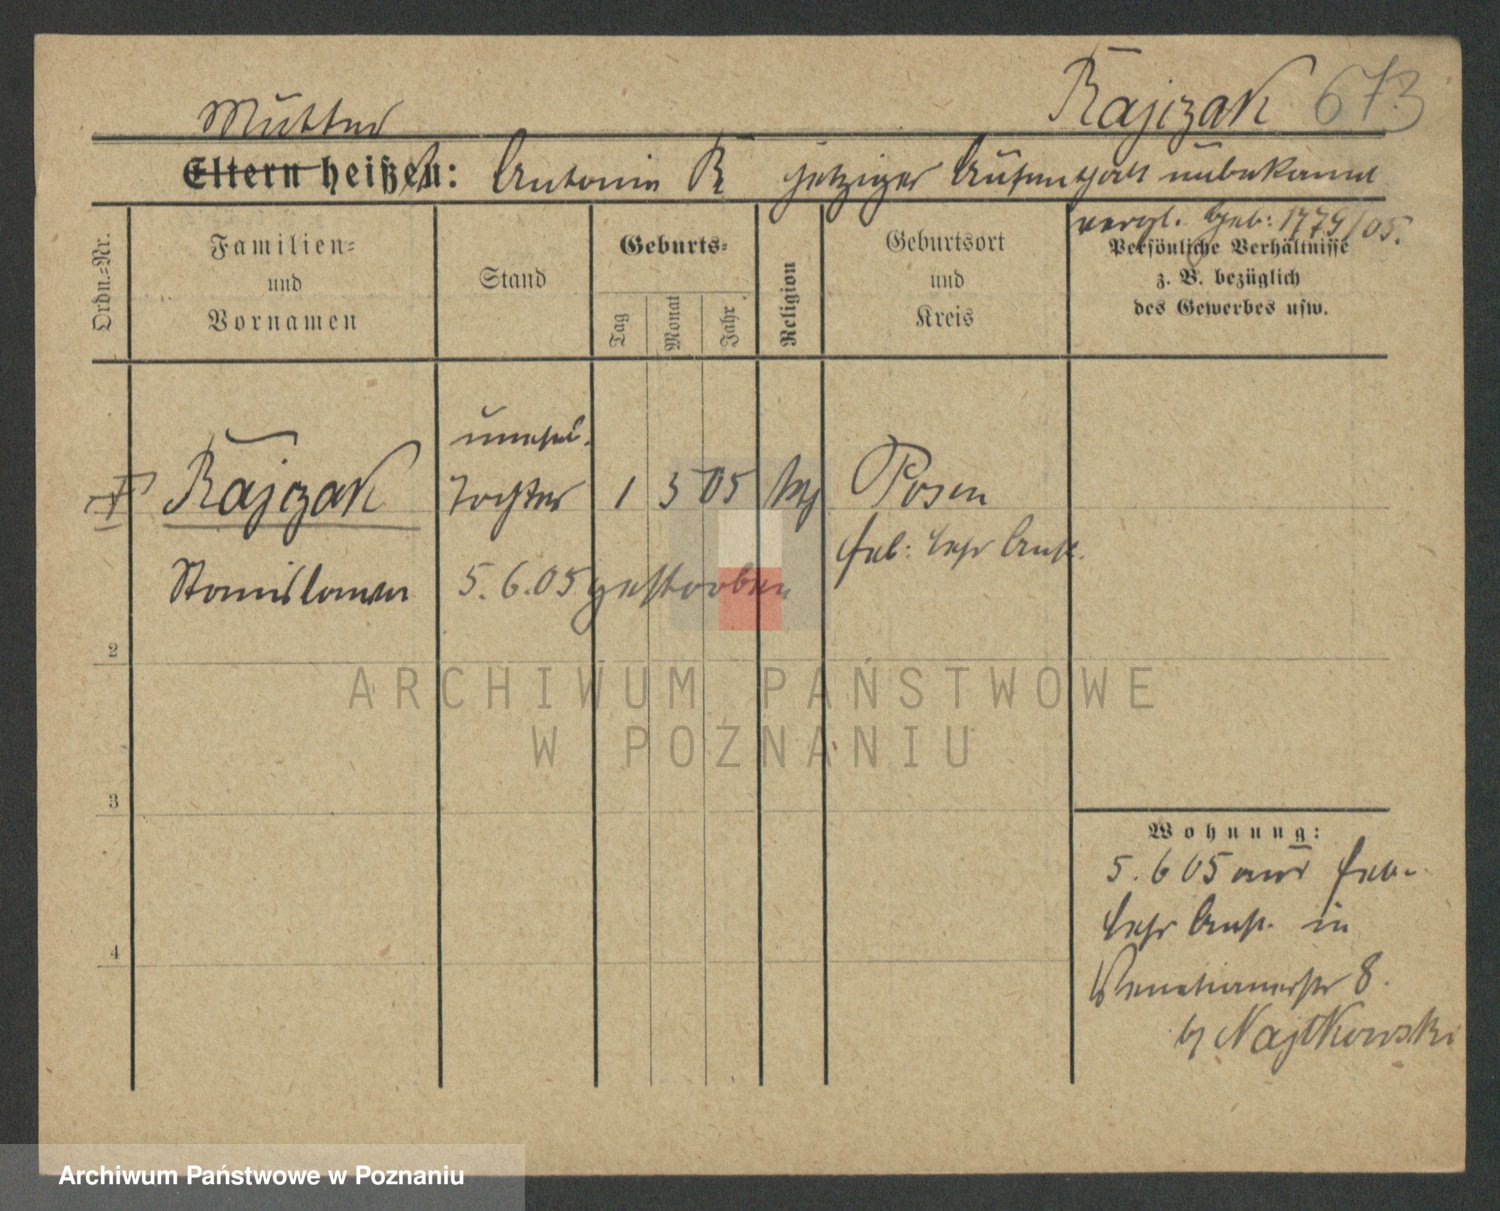 Rajczak 673
Mutter
Eltern heißen: Antonie R jetziger Aufenthalt unbekannt
vergl. Geb: 1779/05.
Ordn.=Nr.
Familien=
und
Vornamen
Stand
Geburts=
Tag
Monat
Jahr
Religion
Geburtsort
und
Kreis
Persönliche Verhältnisse
z. B. bezüglich
des Gewerbes usw.
unehel.
Rajczak Tochter 1 5 05 Posen
Heb: Lehr Anst.
Stanislawa 5.6.05 gestorben
2
3
4
Wohnung:
5.6 05 aus Heb-
Lehr Anst. in
Venetianerstr 8.
b/ Najtkowski
ARCHIWUM PAŃSTWOWE
W POZNANIU
Archiwum Państwowe w Poznaniu